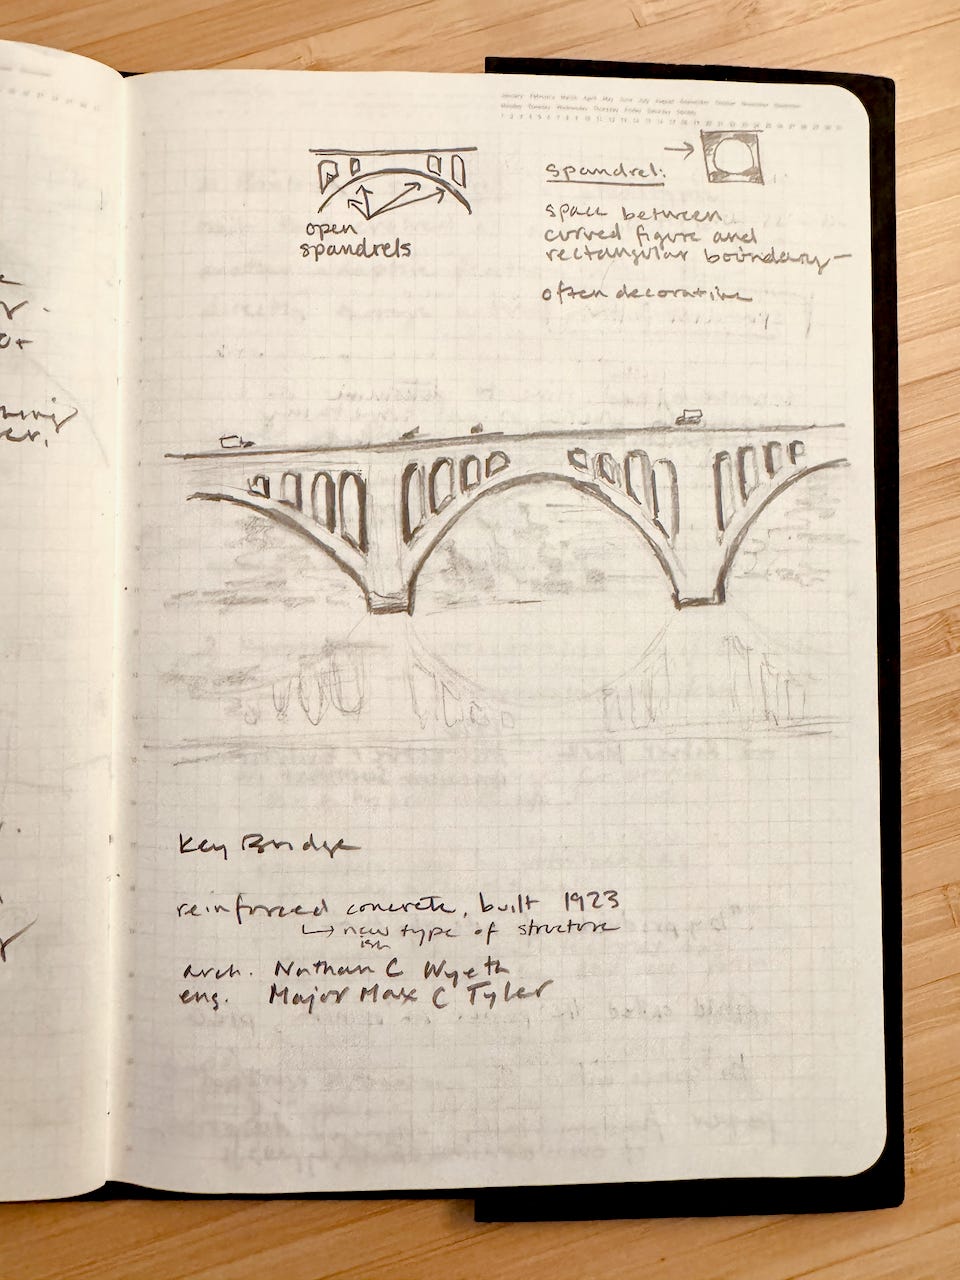 January February March April May June July August September October November December
Monday Tuesday Wednesday Thursday Friday Saturday Sunday
1 2 3 4 5 6 7 8 9 10 11 12 13 14 15 16 17 18 19 20 21 22 23 24 25 26 27 28 29 30 31
open
spandrels
spandrel:
space between
curved figure and
rectangular boundary—
often decorative
Key Bridge
reinforced concrete, built 1923
↳ new type of structure
ish
arch. Nathan C Wyeth
eng. Major Max C Tyler